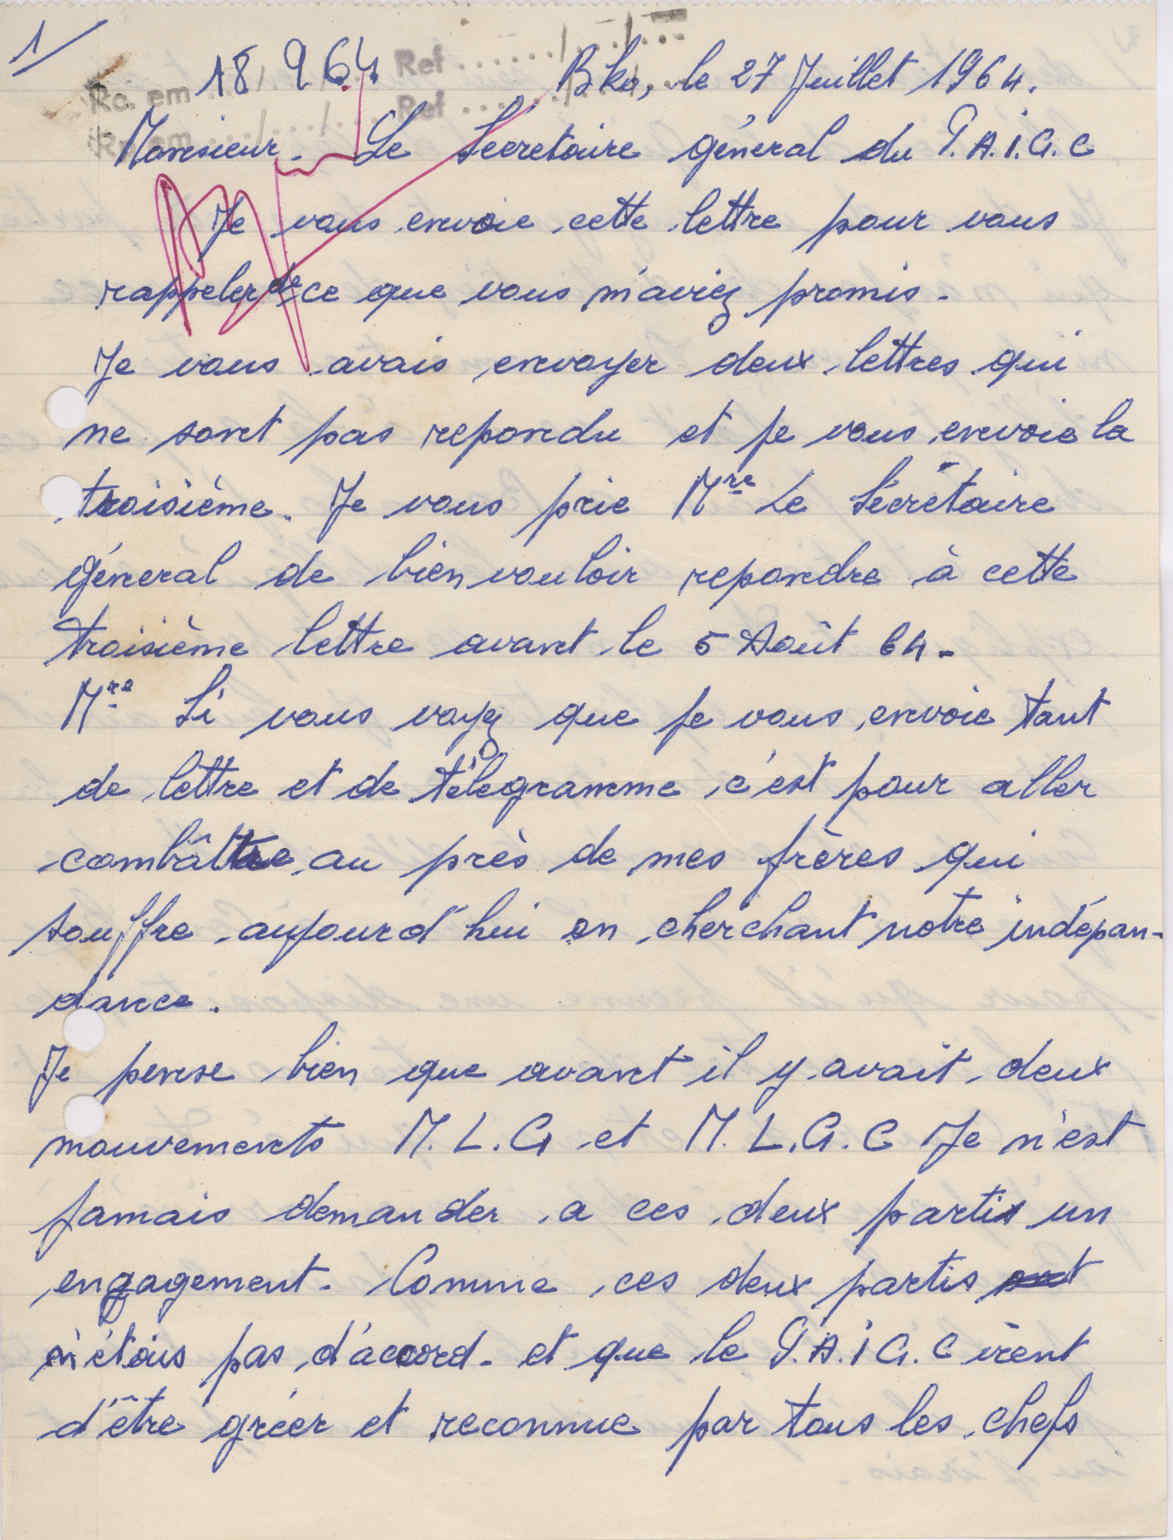 1
18 9 64
Rc. em .../.../... Ref ....../.../...
Rc. em .../.../... Ref ....../.../...
Bko, le 27 Juillet 1964.
Monsieur. Le Sécretaire géneral du P.A.I.G.C
Je vous envoie cette lettre pour vous
rappeler de ce que vous m'aviez promis.
Je vous avais envoyer deux lettres qui
ne sont pas repondu et je vous envoie la
troisième. Je vous prie Mre Le Sécrétaire
géneral de bien vouloir repondre à cette
troisième lettre avant le 5 Août 64.
Mre Si vous voyez que je vous envoie tant
de lettre et de télégramme c'est pour aller
combâttre au près de mes frères qui
souffre aujourd'hui en cherchant notre indépan-
dance.
Je pense bien que avant il y avait deux
mouvements M.L.G et M.L.G.C Je n'est
jamais demander a ces deux partis un
engagement. Comme ces deux partis
n'étais pas d'accord. et que le P.A.I G.C vient
d'être gréer et reconnue par tous les chefs